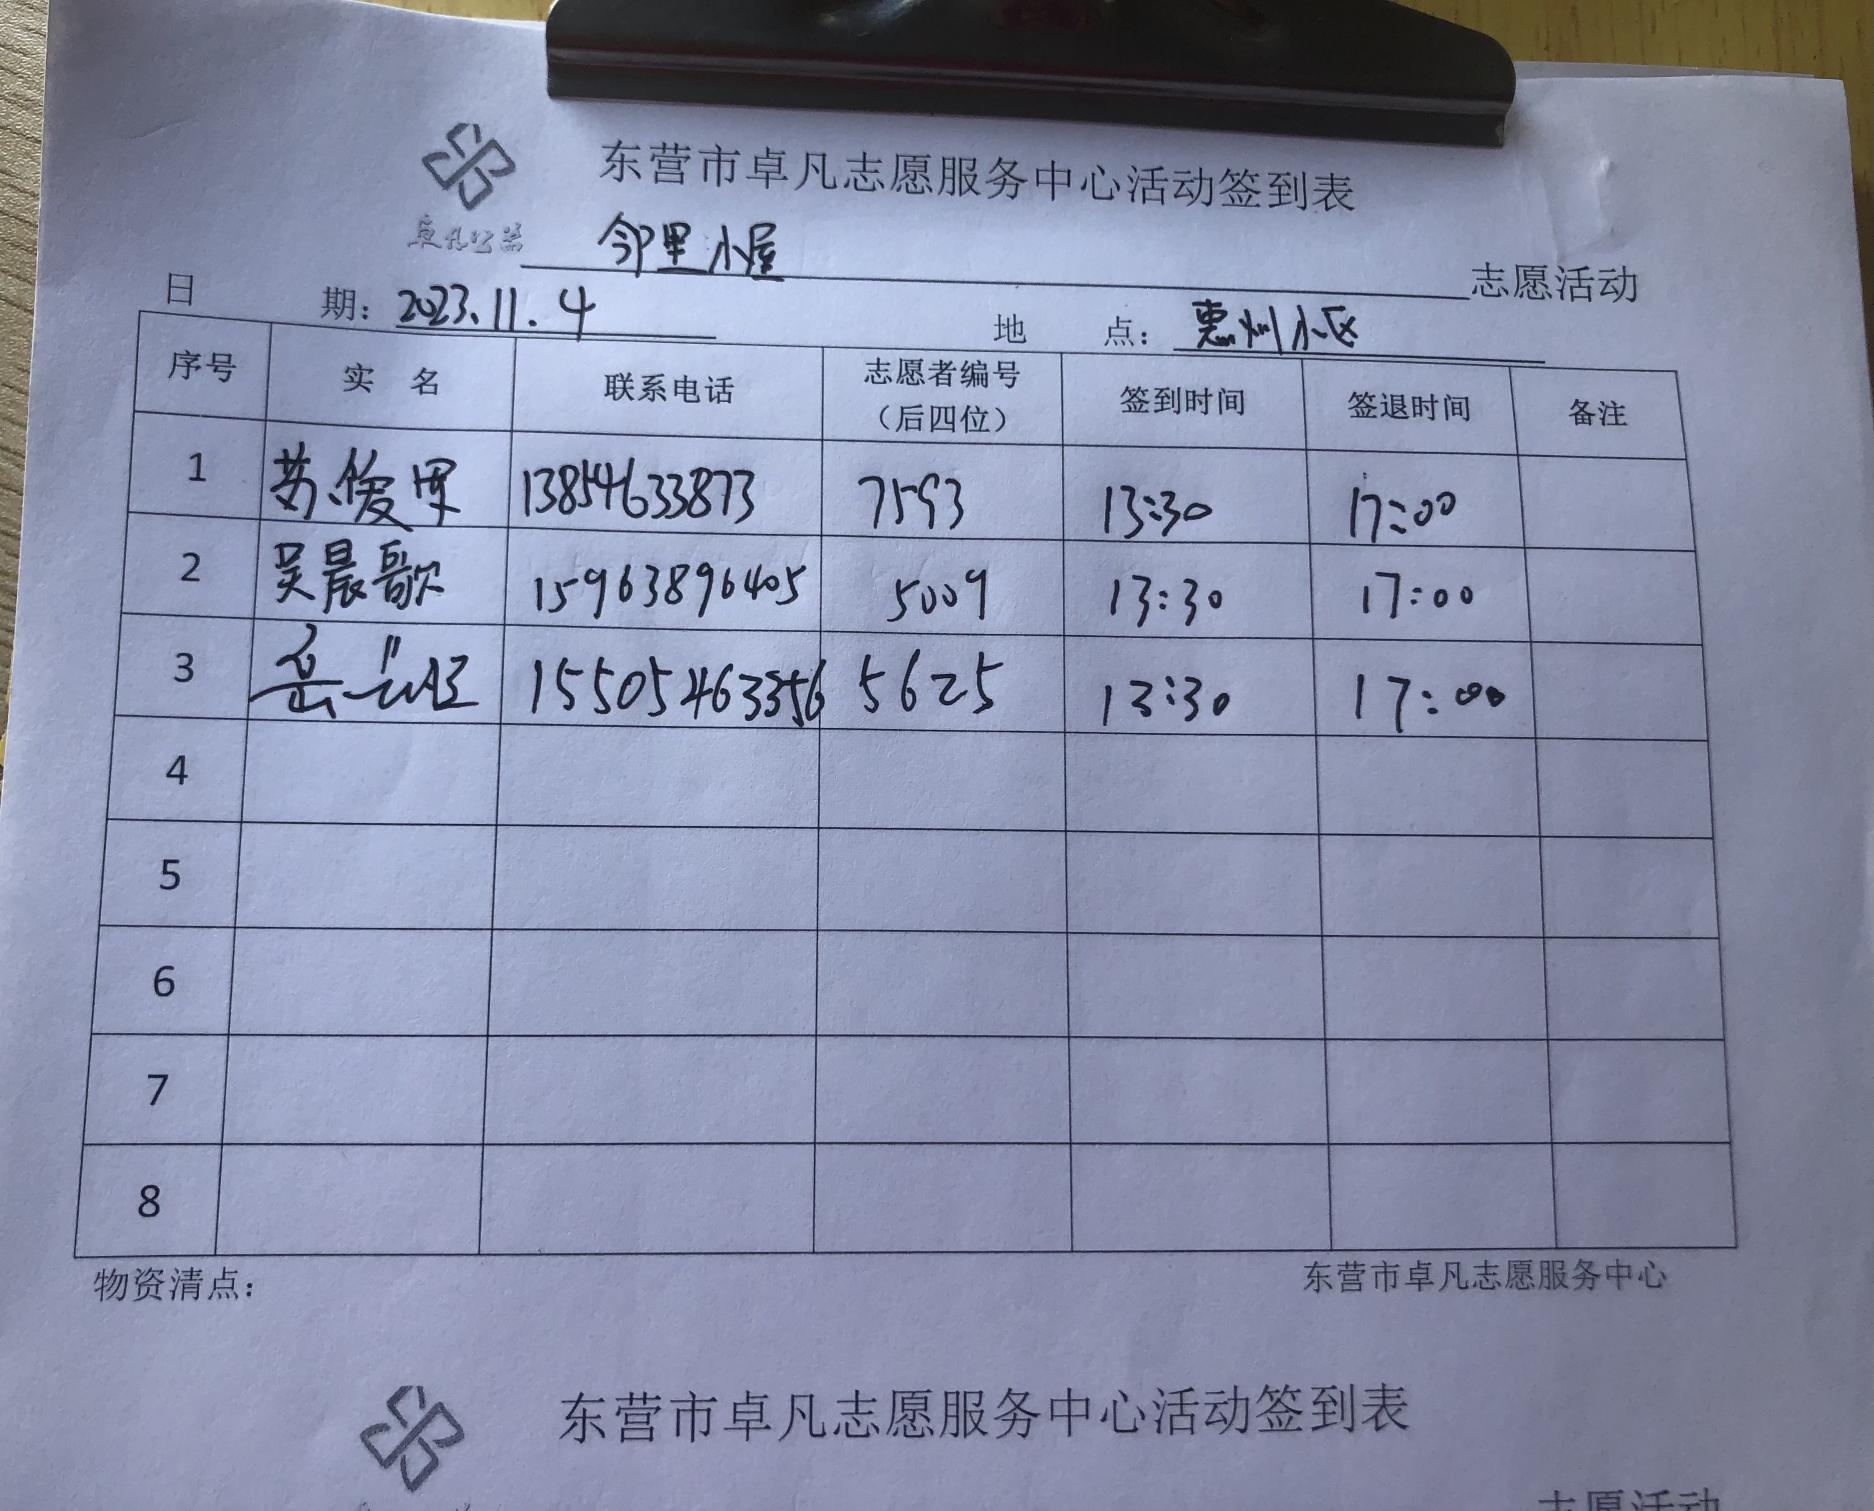 东营市卓凡志愿服务中心活动签到表
卓凡公益
邻里小屋 志愿活动
日 期：2023.11.4 地 点：惠州小区
序号 实 名 联系电话 志愿者编号（后四位） 签到时间 签退时间 备注
1 苏俊 13854633873 7593 13:30 17:00
2 吴晨歌 15963896405 5009 13:30 17:00
3 岳 15505463356 5625 13:30 17:00
4
5
6
7
8
物资清点： 东营市卓凡志愿服务中心
东营市卓凡志愿服务中心活动签到表
志愿活动